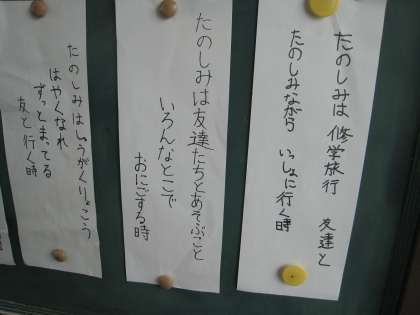 たのしみは 修学旅行 友達と
たのしみながら いっしょに行く時
たのしみは友達たちとあそぶこと
いろんなとこで
おにごする時
たのしみはしゅうがくりょこう
はやくなれ
ずっとまってる
友と行く時